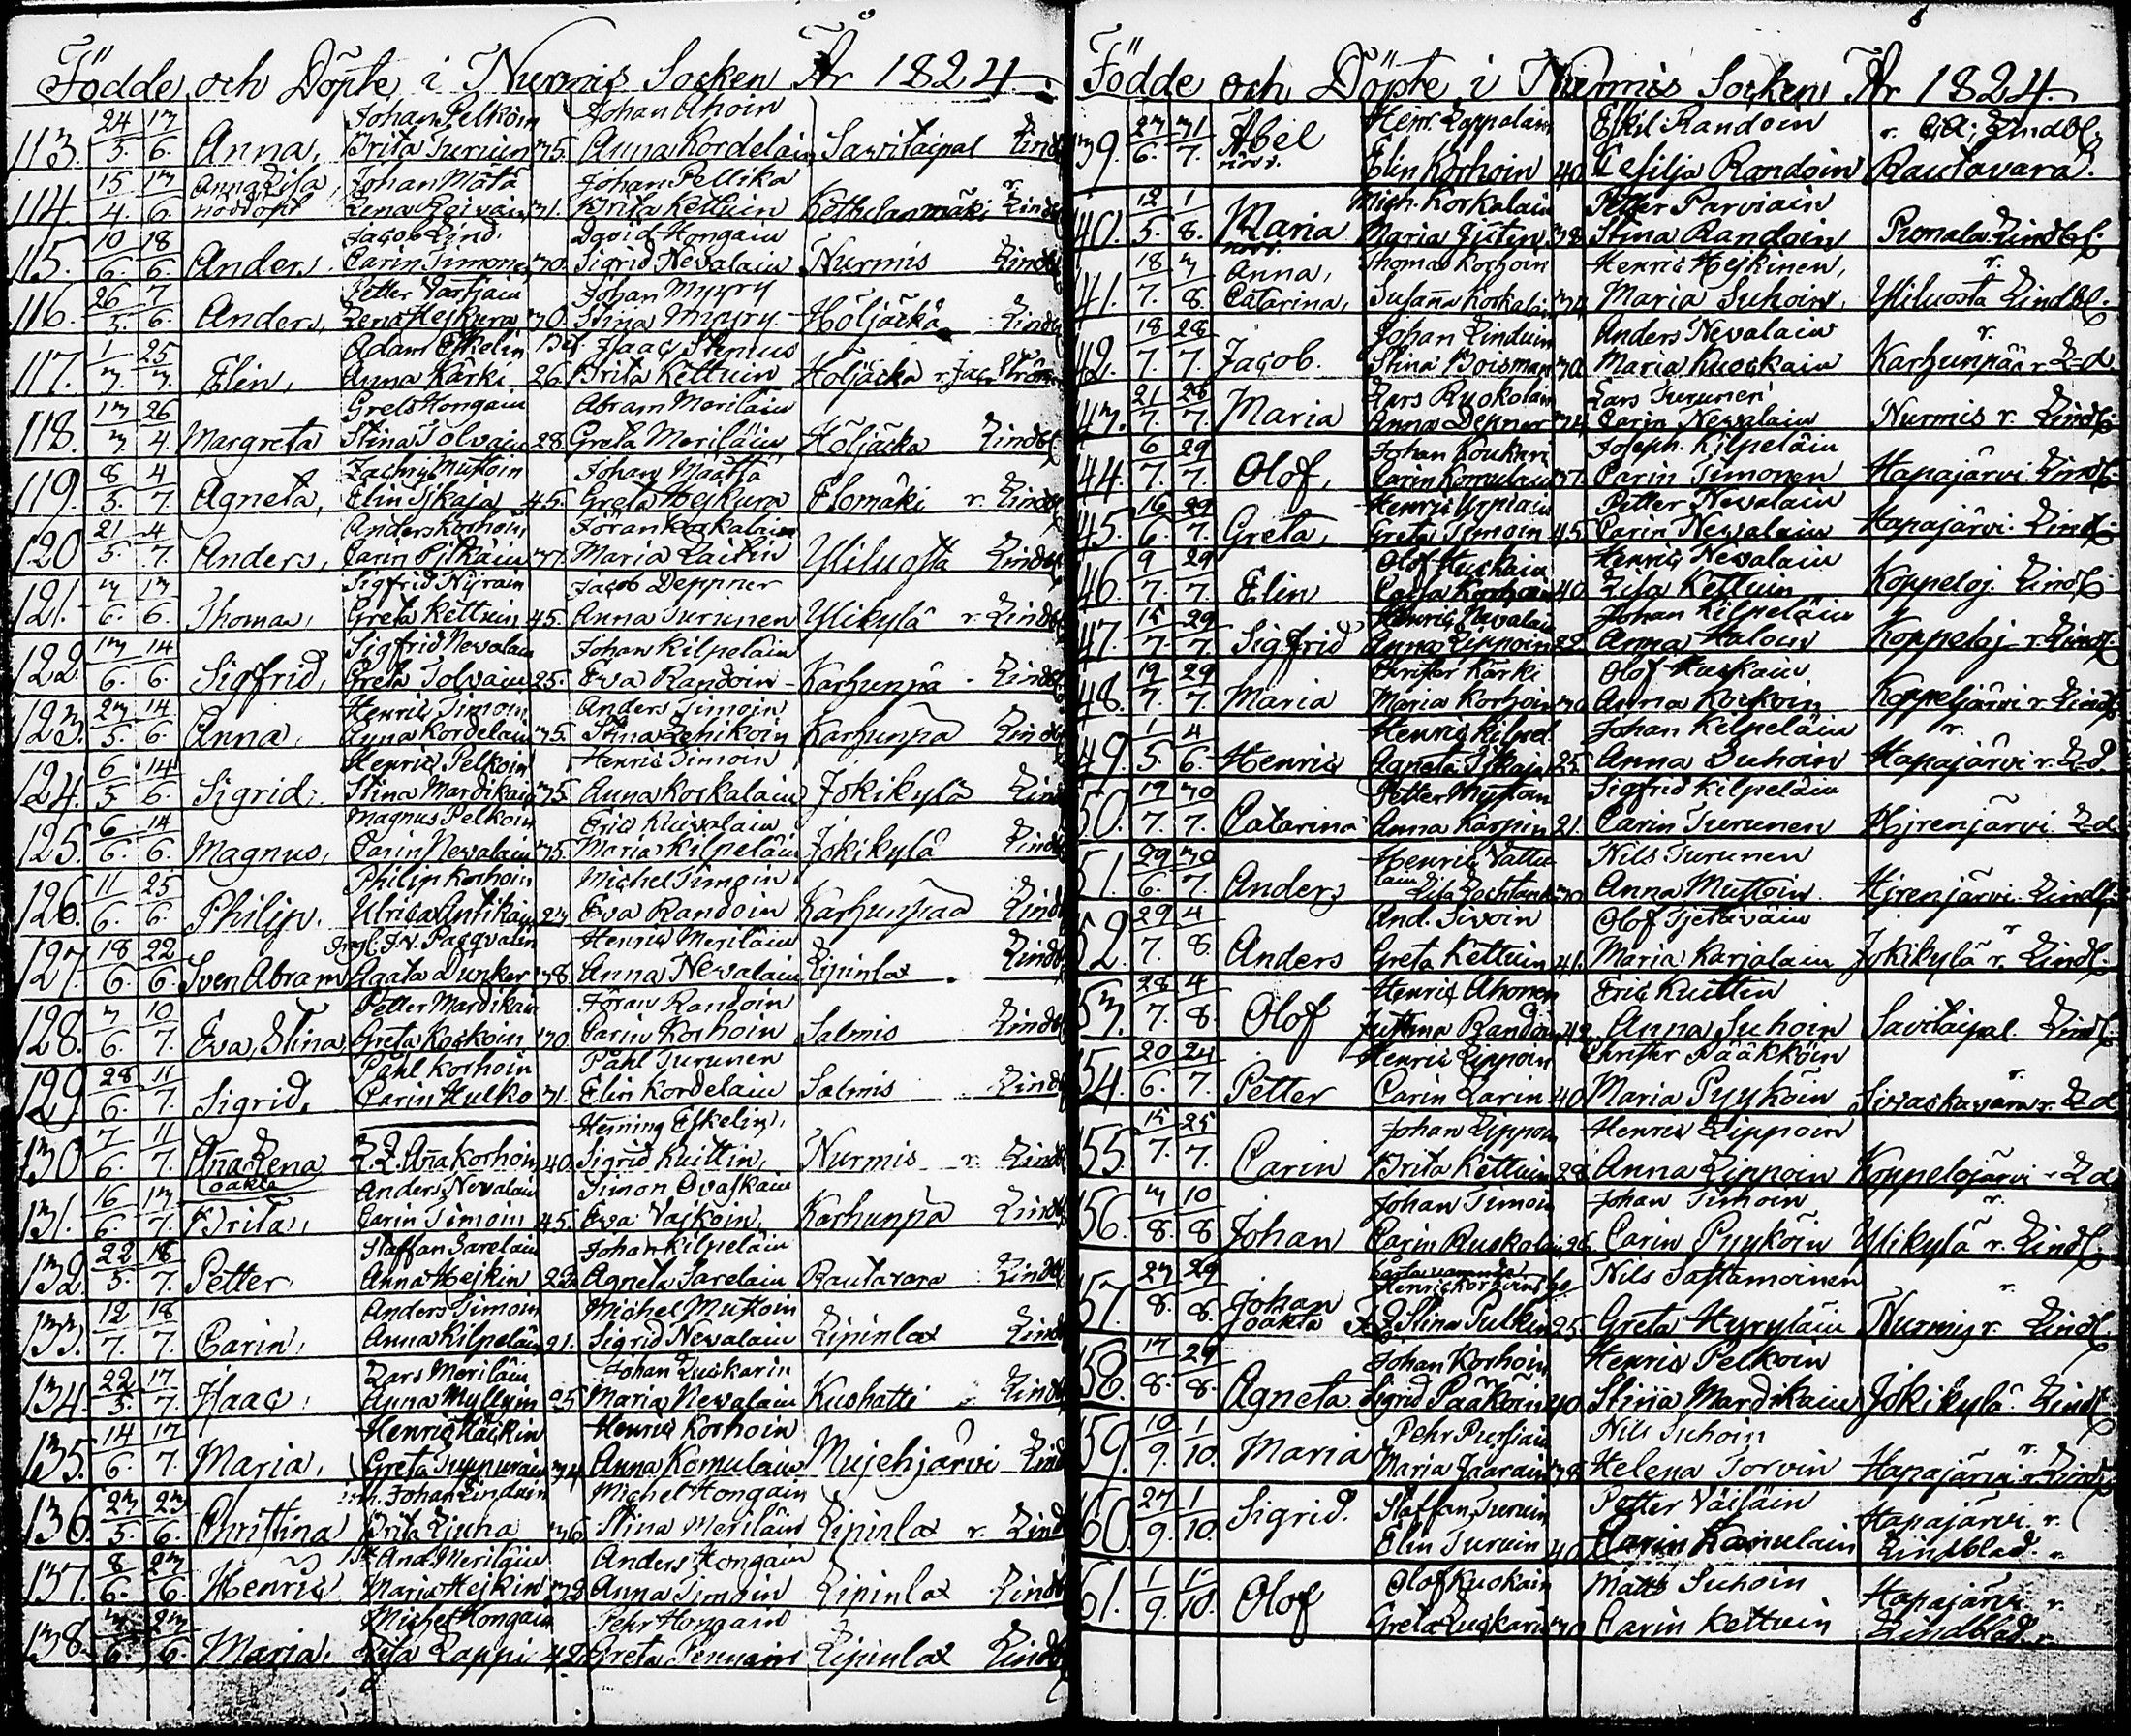 Födde och Döpte i Nurmis Socken År 1824.
113. 24/5. 13/6. Anna, Johan Pelkoin Brita Turuin 35. Johan Ahoin Anna Kordelain Savitaipal Lindb
114. 15/4. 13/6. Anna Lisa nöddöpt Johan Mätä Lena 31. Johan Pellika Brita Kettuin Kethulanmäki r. Lindb
115. 10/6. 18/6. Anders Jacob Lind. Carin Timone 30. David Hongain Sigrid Nevalain Nurmis Lindb
116. 26/5. 7/6. Anders, Petter Vartiain Lena Hejkura 30. Johan Myyry Stina Myyry Höljäckä Lindb
117. 1/3. 25/3. Elin, Adam Eskelin Anna Kärki 26. Isaac Stenius Brita Kettuin Höljäcka r. Jac. Ström
118. 13/3 26/4. Margreta Grels Hongain Stina Tolvain 28. Abram Meriläin Greta Meriläin Höljäcka Lindbl
119. 8/5. 4/7. Agneta, Zachris Mustoin Elin Tskaja 45. Johan Määttä Greta Hejkura Elomäki r. Lindb
120 21/5. 4/7. Anders, Anders Korhoin Carin Pitkäin 33. Jöran Korkalain Maria Laitin Yliluosta Lindb
121. 3/6. 13/6. Thomas, Sigfrid Greta Kettuin 45. Jacob Deppner Anna Turunen Ylikylä r. Lindb
122 13/6. 14/6. Sigfrid, Sigfrid Nevalain Greta Tolvain 25. Johan Kilpeläin Eva Randoin Karhunpä Lindb
123. 23/5. 14/6. Anna, Henric Timoin Anna Kordelain 35. Anders Timoin Stina Lehikoin Karhunpä Lindb
124. 6/5 14/6. Sigrid. Henric Pelkoin Stina Mardikain 35. Henric Timoin Anna Korkalain Jokikylä Lind
125. 6/6. 14/6. Magnus, Magnus Pelkoin Carin Nevalain 35. Eric Kuivalain Maria Kilpeläin Jokikylä Lindb
126. 11/6. 25/6. Philip. Philip Korhoin Ulrica Antikain 23. Michel Timoin Eva Randoin Karhunpää Lindb
127. 18/6. 22/6. Sven Abram Agata Dunker 38. Henric Meriläin Anna Nevalain Lipinlax Lindb
128. 3/6. 10/7. Eva, Stina Petter Mardikain Greta Koskoin 30. Jöran Randoin Carin Korhoin Salmis Lindb
129. 28/6. 11/7. Sigrid. Påhl Korhoin Carin Hulko 31. Påhl Turunen Elin Kordelain Salmis Lindb
130 7/6. 11/7. Aña Lena oäkta L. L. Aña Korhoin 40. Henning Eskelin, Sigrid Kuittin, Nurmis r. Lindb
131. 16/6. 13/7. Brita, Anders Nevalain Carin Timoin 45. Simon Ovaskain Eva Karhunpä Lindb
132. 22/5. 18/7. Petter Staffan Sarelain Anna Hejkin 22. Johan Kilpeläin Agneta Sarelain Rautavara Lindbl
133. 12/7. 18/7. Carin, Anders Timoin Anna Kilpeläin 21. Michel Mustoin Sigrid Nevalain Lipinlax Lindb
134. 22/5. 17/7. Isaac, Lars Meriläin Anna Myllyin 25 Johan Luckarin Maria Nevalain Kuohatti Lindb
135. 14/6. 17/7. Maria, Henric Häckin Greta Tuppurain 34. Henric Korhoin Anna Komulain Mujehjärvi Lind
136. 23/5. 23/6. Christina Johan Linduin Brita Ljuna 36. Michel Hongain Stina Meriläin Lipinlax r. Lind
137. 8/6. 23/6. Henric And. Meriläin Maria Hejkin 32. Anders Hongain Anna Timoin Lipinlax Lindb
138. 6. 23/6. Maria, Michel Hongain Lisa Lappi 42. Pehr Hongain Greta Lipinlax Lindb
Födde och Döpte i Nurmis Socken År 1824.
39. 23/6. 31/7. Abel Henr. Lappalain Elin Korhoin 40. Eskil Randoin Cesilja Randoin Lindbl. Rautavara.
40. 12/5. 1/8. Maria Mich. Korkalain Maria 38 Petter Parviain Stina Randoin Lindbl.
41. 18/7. 3/8. Anna, Catarina, Thomas Korhoin Susaña Korkalain 34 Henric Hejkinen, Maria Suhoin, Yliluosta Lindbl.
42. 18/7. 28/7. Jacob. Johan Linduin Stina Boisman 30. Anders Nevalain Maria Kuockain Karhunpää r. L-d
43. 21/7. 28/7. Maria Lars Ruokolain Anna Depner 34 Lars Turunen Carin Nevalain Nurmis r. Lindb.
44. 6/7. 29/7. Olof, Johan Koukari Carin Komulain 37. Joseph. Kilpeläin Carin Timonen Hapajärvi. Lindb.
45. 16/6. 29/7. Greta, Henric Greta Timoin 45 Petter Nevalain Carin Nevalain Hapajärvi. Lindb.
46. 9/7. 29/7. Elin Olof Huskain Korhoin 40 Henric Nevalain Lisa Kettuin Koppeloj. Lindb.
47. 15/7. 29/7. Sigfrid Henric Nevalain Anna Lippoin 22. Johan Kilpeläin Anna Haloin Koppeloj r. Lindb.
48. 19/7. 29/7. Maria Christer Kärki Maria Korhoin 30 Olof Huskain Anna Korhoin Koppeljärvi r. Lindb
49. 1/5. 4/6. Henric Henric Kilpel Agneta Tskaja 25. Johan Kilpeläin Anna Suhoin Hapajärvi r. L-d.
50. 19/7. 30/7. Catarina Petter Mustoin Anna Karpin 21. Sigfrid Kilpeläin Carin Turunen Hjrenjärvi. L-d
51. 29/6. 30/7. Anders Henric Vattulain Lisa 30. Nils Turunen Anna Mustoin Hjrenjärvi. Lindb.
52. 29/7. 4/8. Anders And. Sivoin Greta Kettuin 41. Olof Tjekäväin Maria Karjalain Jokikylä r. Lindb.
53. 28/7. 4/8. Olof Henric Ahonen Justina Randoin 42. Eric Kuittin Anna Suhoin Savitaipal. Lindb.
54. 20/6. 24/7. Petter Henric Lippoin Carin Larin 40. Christer Pääkköin Maria Pyyköin r. L-d
55. 15/7. 25/7. Carin Johan Lippoin Brita Kettuin 28. Henric Lippoin Anna Lippoin Koppelojärvi r. L-d
56. 3/8. 10/8 Johan Johan Timoin Carin Ruokolain 26. Johan Timoin Carin Pyyköin Ylikylä r. Lindb.
57. 23/8. 29/8. Johan oäkta Henric Korhoins Stina Pulkin 25. Nils Sastamoinen Greta Hyryläin Nurmis r. Lindb.
58. 17/8. 29/8. Agneta Johan Korhoin Sigrid Pääköin 40. Henric Pelkoin Stina Mardikain Jokikylä. Lindb
59. 10/9. 1/10. Maria Pehr Pursiain Maria Jaarain 39. Nils Suhoin Helena Torvin Hapajärvi. r. Lindb.
60. 27/9. 1/10. Sigrid. Staffan Turuin Elin Turuin 40 Petter Väisäin Carin Kamulain Hapajärvi. r. Lindblad.
61. 1/9. 10. Olof Olof Kuokain Greta Luckarin 30 Matts Suhoin Carin Kettuin Hapajärvi. r. Lindblad. r.